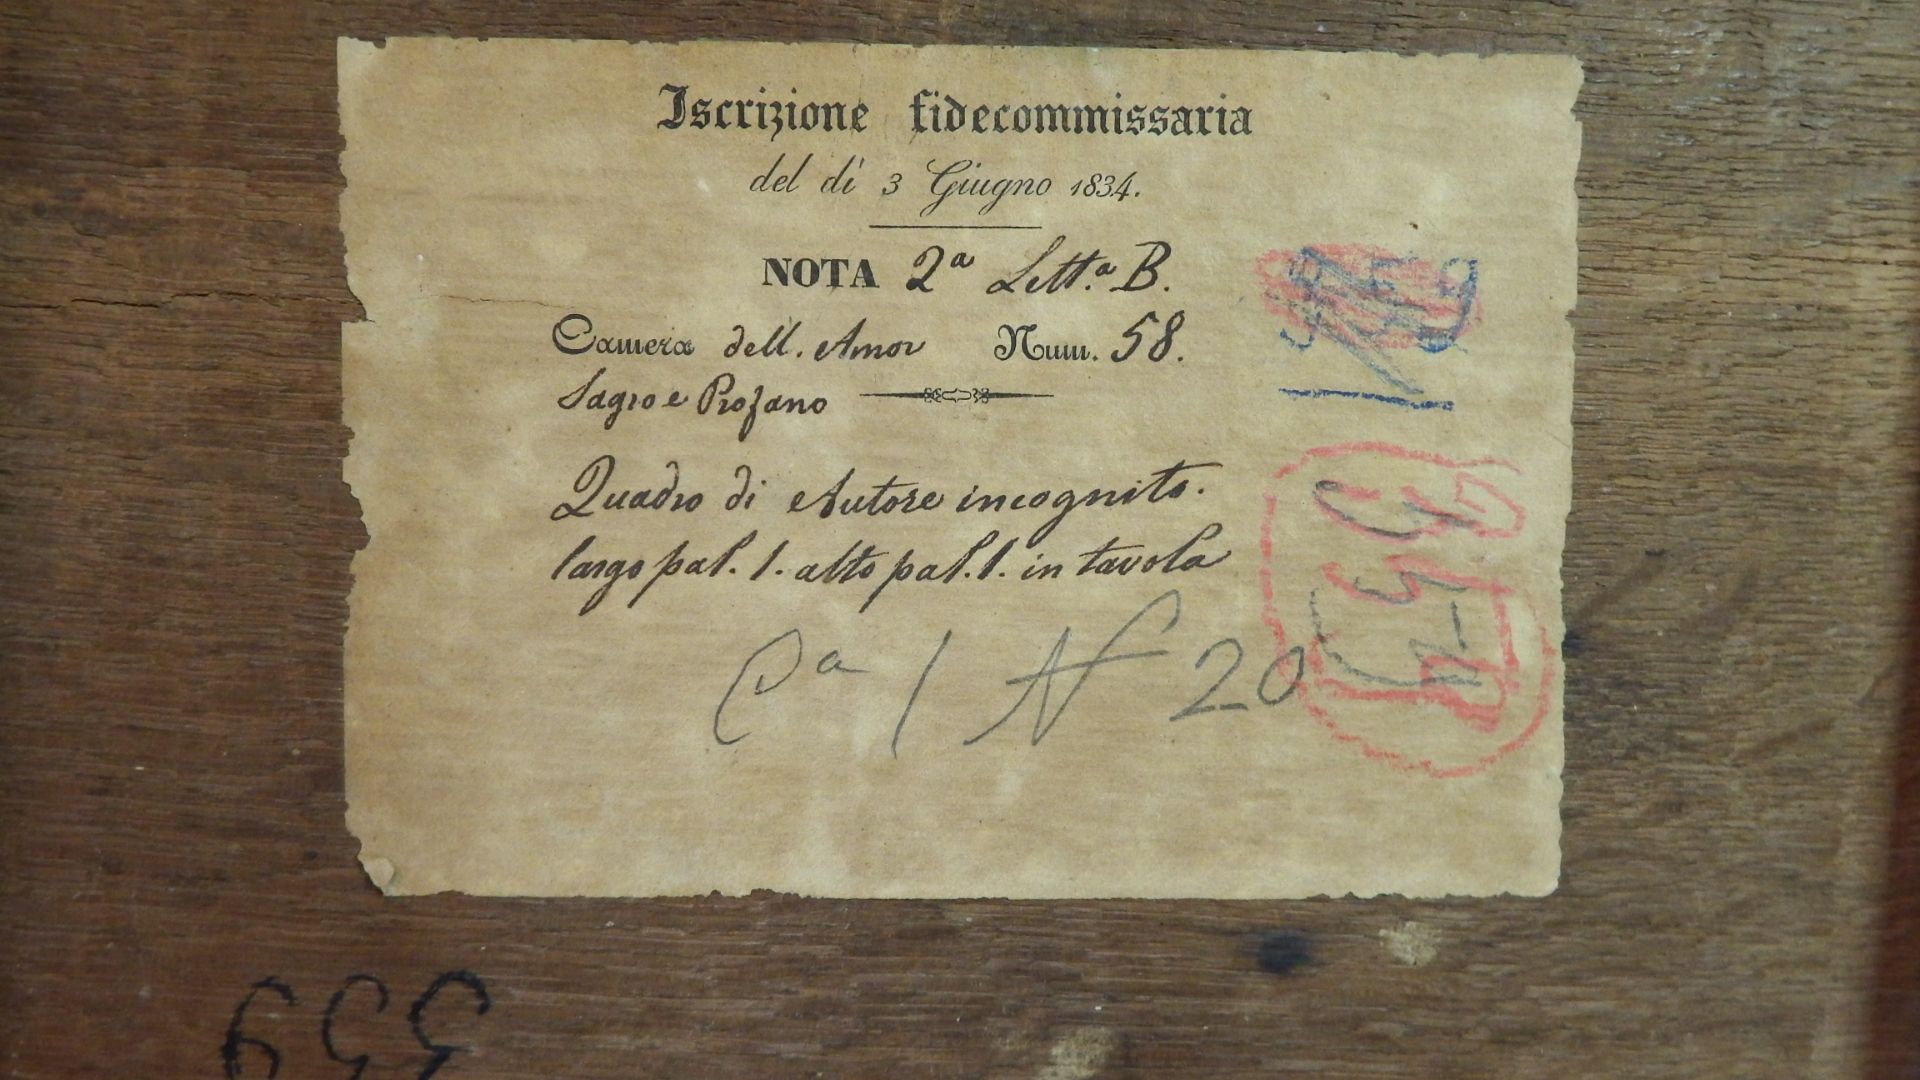 Iscrizione fidecommissaria
del dì 3 Giugno 1834.
NOTA 2ª Lett.ª B.
Camera dell. Amor Num. 58.
Sagro e Profano
Quadro di Autore incognito.
largo pal. 1. alto pal. 1. in tavola
Cª 1 N 20